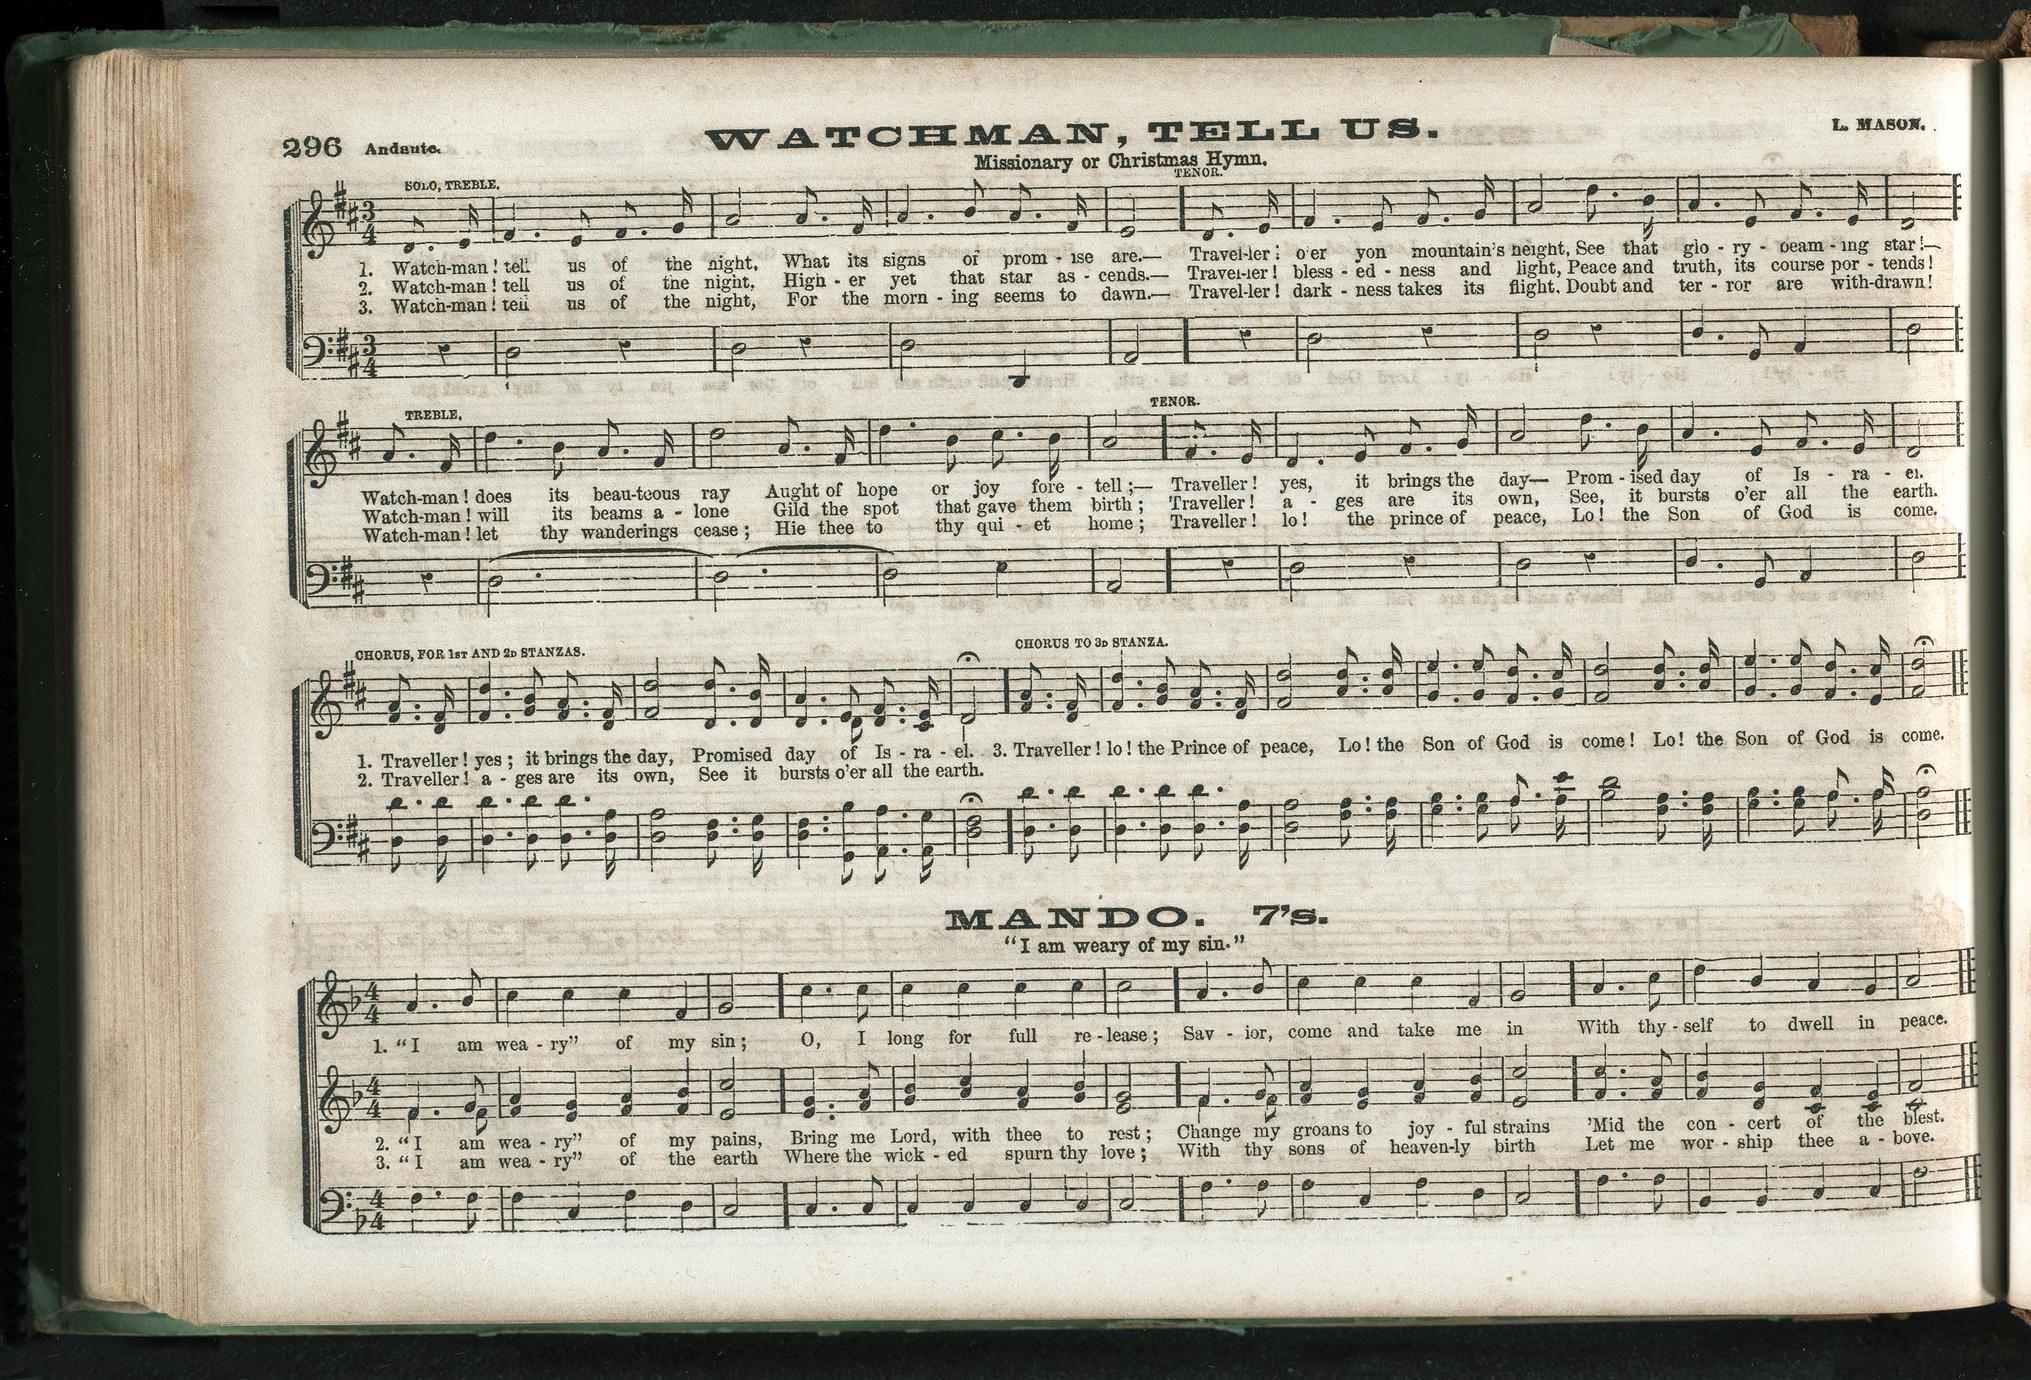 296 Andante. WATCHMAN, TELL US. L. MASON.
Missionary or Christmas Hymn.
SOLO, TREBLE. TENOR.
1. Watch-man! tell us of the night, What its signs of prom - ise are.— Travel-ler! o'er yon mountain's height, See that glo - ry - beam - ing star!—
2. Watch-man! tell us of the night, High - er yet that star as - cends.— Travel-ler! bless - ed - ness and light, Peace and truth, its course por - tends!
3. Watch-man! tell us of the night, For the morn - ing seems to dawn.— Travel-ler! dark - ness takes its flight, Doubt and ter - ror are with-drawn!
TREBLE. TENOR.
Watch-man! does its beau-teous ray Aught of hope or joy fore - tell;— Traveller! yes, it brings the day— Prom - ised day of Is - ra - el.
Watch-man! will its beams a - lone Gild the spot that gave them birth; Traveller! a - ges are its own, See, it bursts o'er all the earth.
Watch-man! let thy wanderings cease; Hie thee to thy qui - et home; Traveller! lo! the prince of peace, Lo! the Son of God is come.
CHORUS, FOR 1ST AND 2D STANZAS. CHORUS TO 3D STANZA.
1. Traveller! yes; it brings the day, Promised day of Is - ra - el. 3. Traveller! lo! the Prince of peace, Lo! the Son of God is come! Lo! the Son of God is come.
2. Traveller! a - ges are its own, See it bursts o'er all the earth.
MANDO. 7's.
"I am weary of my sin."
1. "I am wea - ry" of my sin; O, I long for full re - lease; Sav - ior, come and take me in With thy - self to dwell in peace.
2. "I am wea - ry" of my pains, Bring me Lord, with thee to rest; Change my groans to joy - ful strains 'Mid the con - cert of the blest.
3. "I am wea - ry" of the earth Where the wick - ed spurn thy love; With thy sons of heaven-ly birth Let me wor - ship thee a - bove.